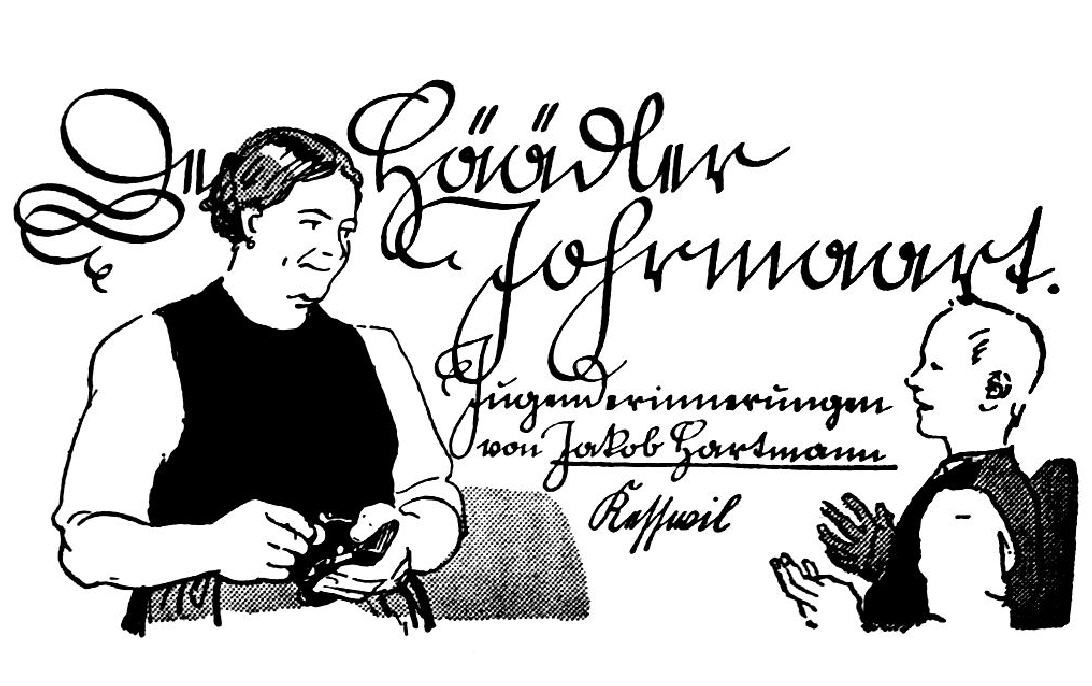 Der Häädler
Johrmaart.
Jugenderinnerungen
von Jakob Hartmann
Kesswil